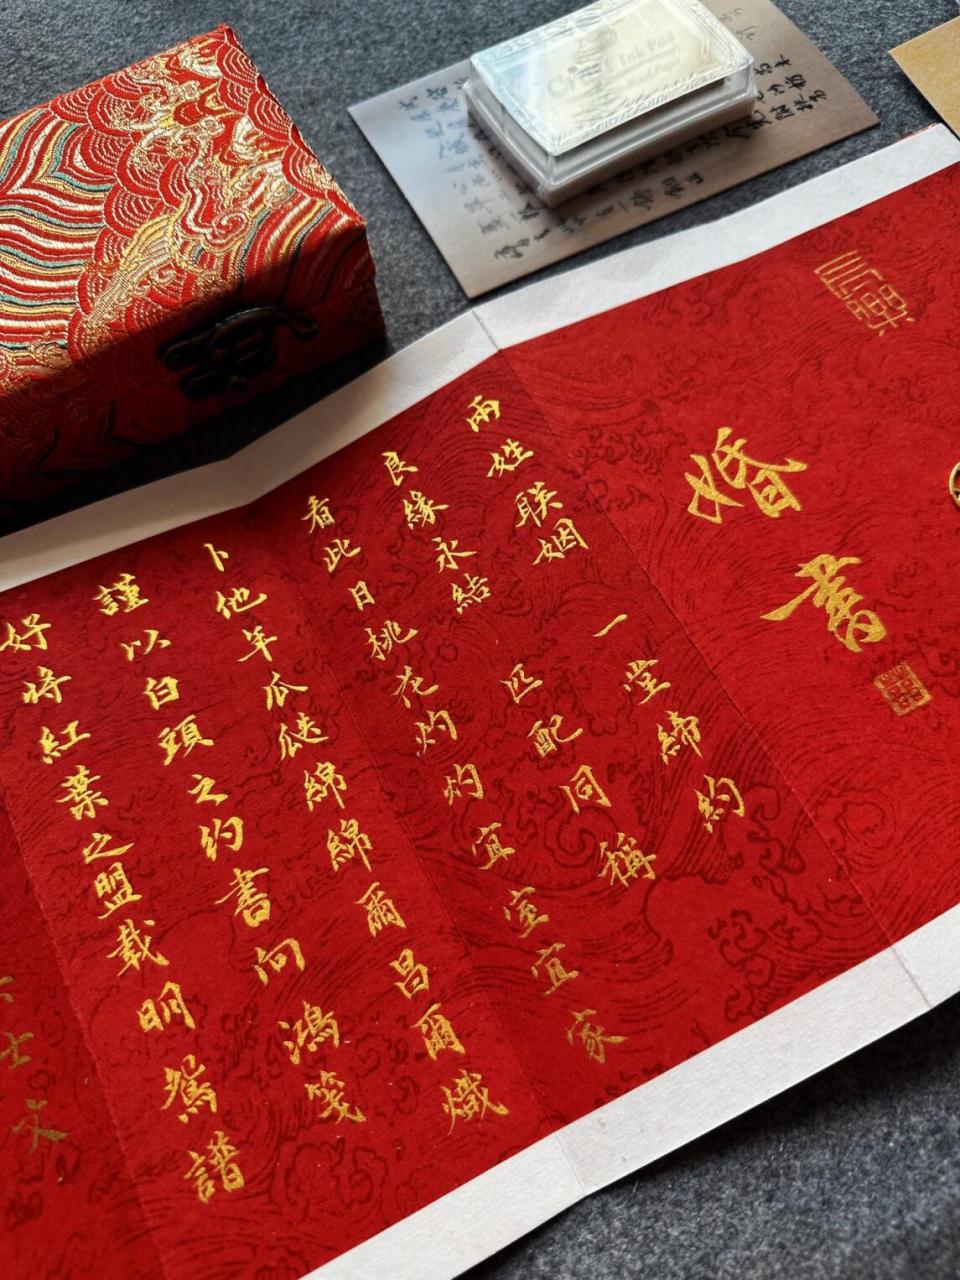 婚書
兩姓聯姻 一堂締約
良緣永結 匹配同稱
看此日桃花灼灼宜室宜家
卜他年瓜瓞綿綿爾昌爾熾
謹以白頭之約書向鴻箋
好將紅葉之盟載明鴛譜
Ink Pad